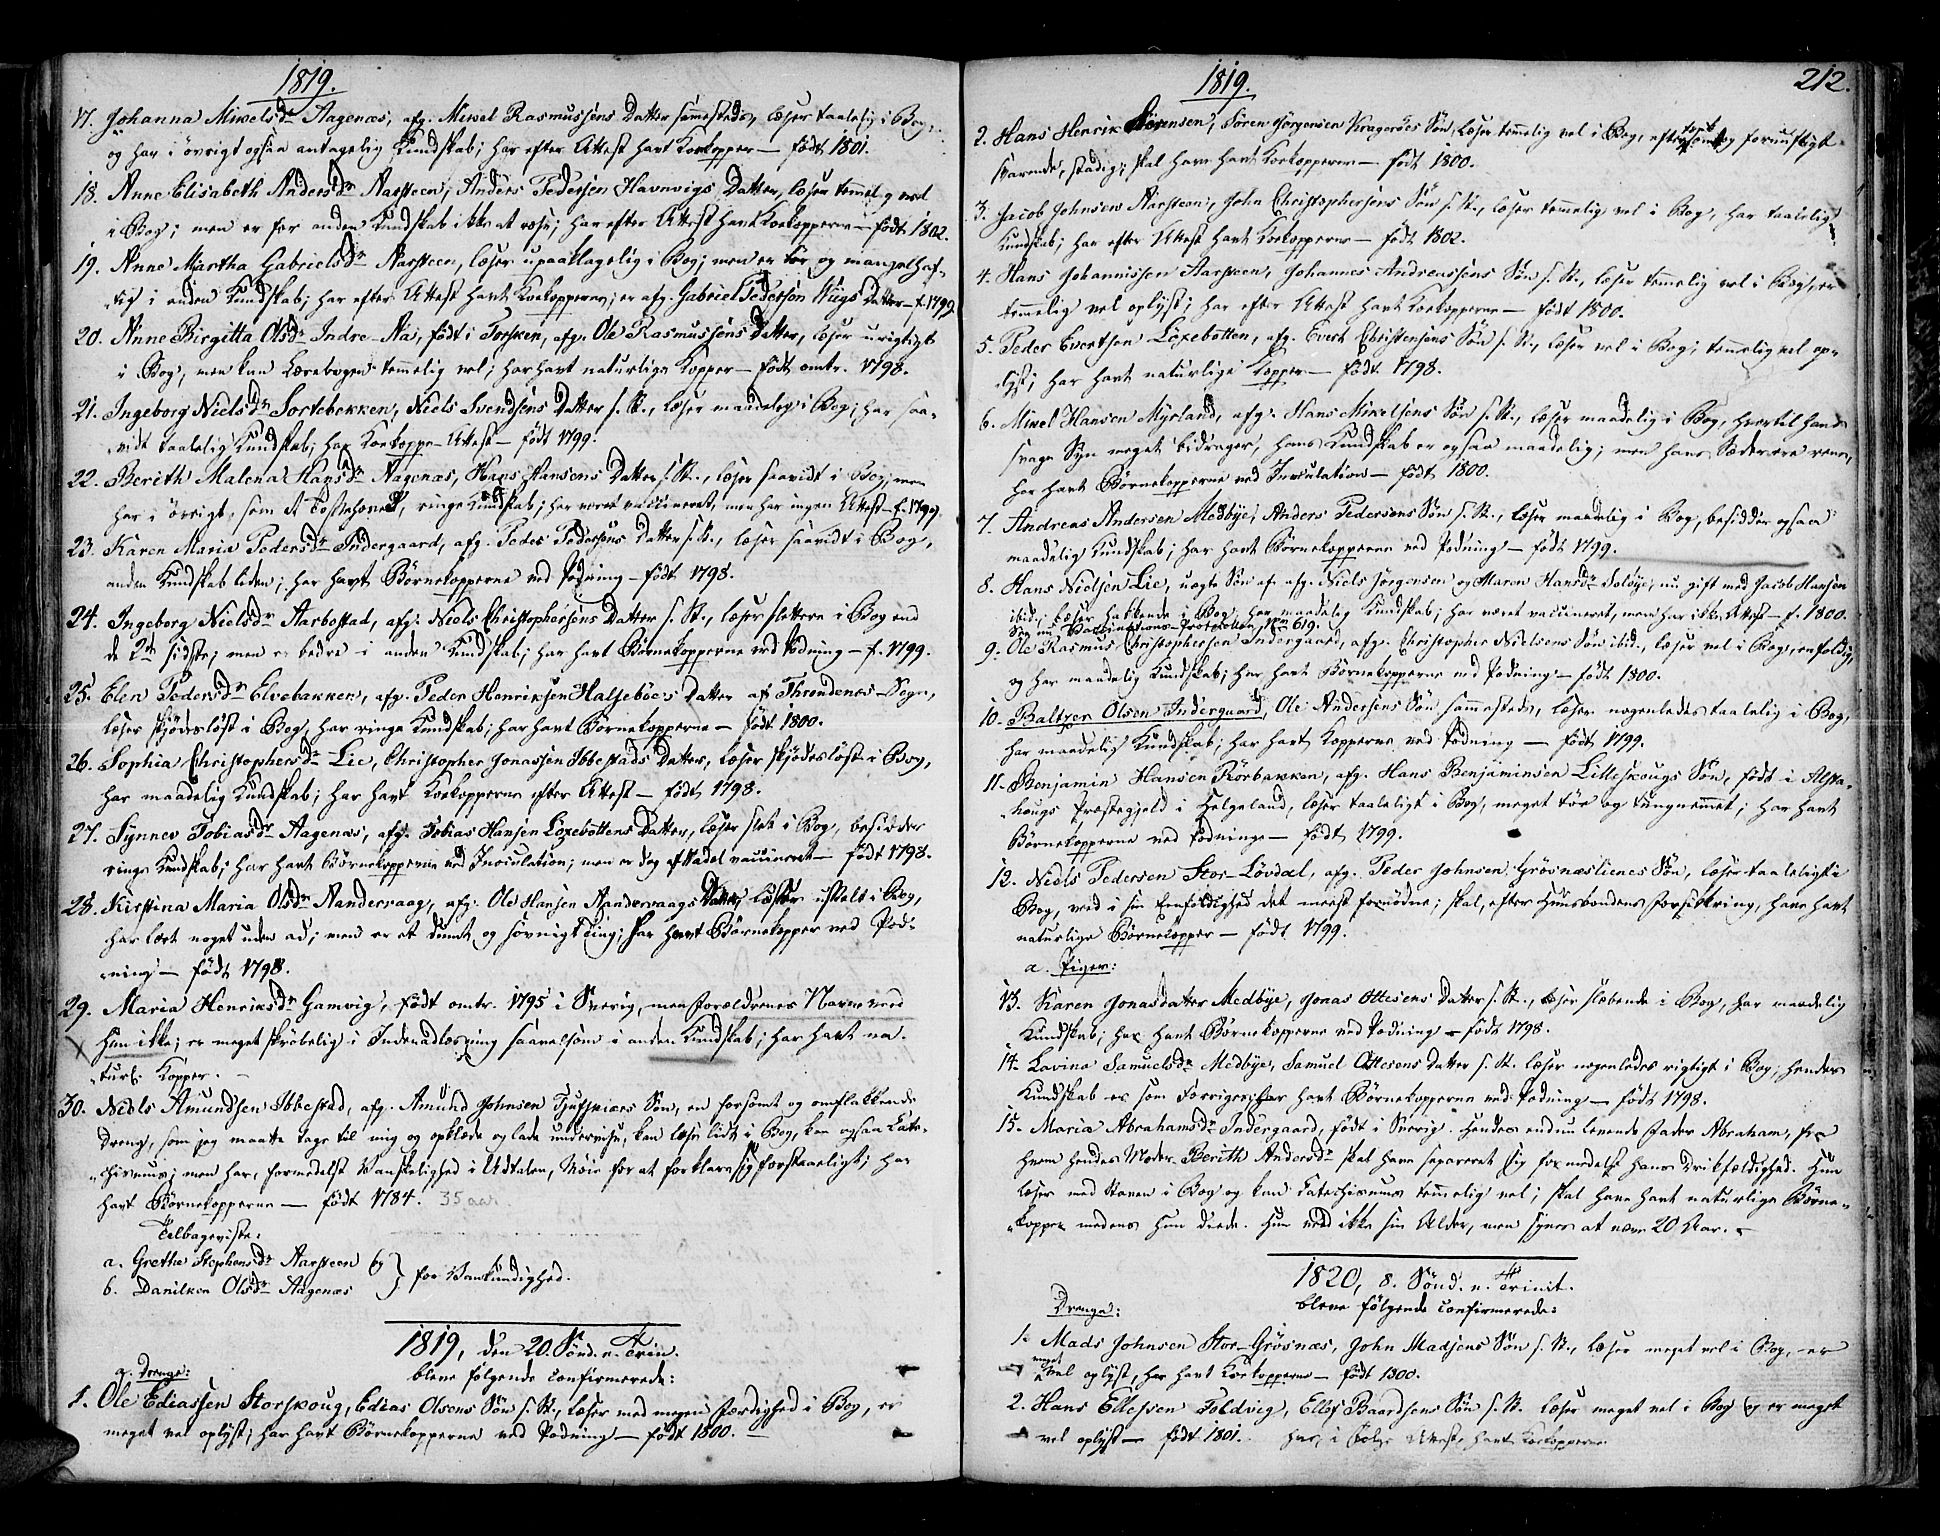 1819.
17. Johanna Mikelsdr Aagenæs, afg. Mikel Rasmussens Datter sammesteds, læser taalelig i Bog,
og har i övrigt ogsaa antagelig Kundskab; har efter Attest havt Koekopper — født 1801.
18. Anne Elisabeth Andersdr Aarsteen, Anders Pedersen Havnvigs Datter, læser temmelig vel
i Bog; men er for anden Kundskab ikke at rose; har efter Attest havt Koekopperne — født 1802.
19. Anne Martha Gabrielsdr Aarsteen, læser upaaklagelig i Bog; men er tör og mangelhaf-
tig i anden Kundskab; har efter Attest havt Koekopperne; er afg. Gabriel Pedersen Viigs Datter — f. 1799
20. Anne Birgitta Olsdr Indre-Aa, født i Torsken, afg. Ole Rasmussens Datter, læser urigtigt
i Bog, men kan Lærebogen temmelig vel; har havt naturlige Kopper — født omtr. 1798.
21. Ingeborg Nielsdr Sortebekken, Niels Svendsens Datter s. St., læser maadelig i Bog; har saa-
vidt taalelig Kundskab; har Koekoppe-Attest — født 1799.
22. Berith Malena Hansdr Aagenæs, Hans Hansens Datter s. St., læser saavidt i Bog, men
har i övrigt, som et Tossehoved, ringe Kundskab; har været vaccineret, men har ingen Attest — f. 1799.
23. Karen Maria Pedersdr Indergaard, afg. Peder Pedersens Datter s. St., læser saavidt i Bog,
anden Kundskab liden; har havt Börnekopperne ved Podning — født 1798.
24. Ingeborg Nielsdr Aarbostad, afg. Niels Christophersens Datter s. St., læser slettere i Bog end
de 2de sidste; men er bedre i anden Kundskab; har havt Börnekopperne ved Podning — f. 1799.
25. Elen Pedersdr Elvebakken, afg. Peder Henriksen Halsebøes Datter af Throndenæs-Sogn,
læser skjödeslöst i Bog, har ringe Kundskab; har havt Börnekopperne — født 1800.
26. Sophia Christophersdr Lie, Christopher Jonassen Ibbestads Datter, læser skjödeslöst i Bog,
har maadelig Kundskab; har havt Koekopperne efter Attest — født 1798.
27. Synnev Tobiasdr Aagenæs, afg. Tobias Hansen Löxebottens Datter, læser slet i Bog, besidder
ringe Kundskab; har havt Börnekopperne ved Inoculation; men er dog vaccineret — født 1798.
28. Kirstina Maria Olsdr Aandervaag, afg. Ole Hansen Aandervaags Datter, læser ustelt i Bog,
har lært noget uden ad; men er et dumt og sövnigt Ting; har havt Börnekopper ved Pod-
ning — født 1798.
29. Maria Henriksdr Hamvig, født omtr. 1795 i Sverig, men Forældrenes Navne veed
Hun ikke; er meget skröbelig i Indenadlæsning saavelsom i anden Kundskab; har havt na-
turl. Kopper. —
30. Niels Amundsen Ibbestad, afg. Amund Johnsen Tjufskiærs Sön, en forsømt og omflakkende
Dreng, som jeg maatte tage til mig og opklæde og lade undervise, kan læse lidt i Bog, kan ogsaa Cate-
chismus; men har, formedelst Vanskelighed i Udtalen, Möie for at forklare sig forstaaeligt; har
havt Börnekopperne — født 1784. 35 aar.
Tilbageviste:
a. Grethe Stephensdr Aarsteen og
b. Danilken Olsdr Aagenæs
for Vankundighed.
1819, den 20. Sönd. n. Trin.
bleve følgende confirmerede:
a. Drenge:
1. Ole Ediassen Storskoug, Edias Olsens Sön s. St., læser med megen Færdighed i Bog, er
meget vel oplyst; har havt Börnekopperne ved Podning — født 1800. —
1819.
212.
2. Hans Henrik Sörensen, Sören Jörgensen Krageröes Sön, læser temmelig vel i Bog, og fornuftigt
svarende, stadig; skal have havt Koekopperne — født 1800.
3. Jacob Johnsen Aarsteen, John Christophersens Sön s. St., læser temmelig vel i Bog, har taalelig
Kundskab; har efter Attest havt Koekopperne — født 1802.
4. Hans Johannissen Aarsteen, Johannes Andreassens Sön s. St., læser temmelig vel i Bog, er
temmelig vel oplyst; har efter Attest havt Koekopperne — født 1800.
5. Peder Evertsen Löxebotten, afg. Evert Christensens Sön s. St., læser vel i Bog; temmelig vel op-
lyst; har havt naturlige Kopper — født 1798.
6. Mikel Hansen Myrland, afg. Hans Mikelsens Sön s. St., læser maadelig i Bog, hvortil hans
svage Syn meget bidrager, hans Kundskab er ogsaa maadelig; men hans Sæder ere rene,
har havt Börnekopperne ved Inoculation — født 1800.
7. Andreas Andersen Medbye, Anders Pedersens Sön s. St., læser maadelig i Bog, besidder ogsaa
maadelig Kundskab; har havt Börnekopperne ved Podning — født 1799.
8. Hans Nielsen Lie, uægte Sön af afg. Niels Jörgensen og Maren Hansdr Solbye, nu gift med Jacob Hansen
ibid.; læser hakkende i Bog; har maadelig Kundskab; har været vaccineret, men har ikke Attest — f. 1800.
See min Vaccinations-Protocollen, No 619.
9. Ole Rasmus Christophersen Indergaard, afg. Christopher Nielsens Sön ibid., læser vel i Bog, enfoldig,
og har maadelig Kundskab; har havt Börnekopperne ved Podning — født 1800.
10. Baltzer Olsen Indergaard, Ole Andersens Sön sammesteds, læser nogenledes taalelig i Bog,
har maadelig Kundskab; har havt Kopperne ved Podning — født 1799.
11. Benjamin Hansen Rörbakken, afg. Hans Benjaminsen Lilleskougs Sön, født i Alsta-
hougs Præstegjeld i Helgeland, læser taaleligt i Bog, meget tör og tungnemmet; har havt
Börnekopperne ved Podning — født 1799.
12. Niels Pedersen Stor-Lövdal, afg. Peder Johnsen Grösnæslienes Sön, læser taaleligt i
Bog, veed i sin Eenfoldighed det meest fornödne; skal, efter Huusbondens Forsikkring, have havt
naturlige Börnekopper — født 1799.
a. Piger:
13. Karen Jonasdatter Medbye, Jonas Ottesens Datter s. St., læser slæbende i Bog, har maadelig
Kundskab; har havt Börnekopperne ved Podning — født 1798.
14. Lavina Samuelsdr Medbye, Samuel Ottesens Datter s. St. læser nogenledes rigtigt i Bog, hendes
Kundskab er som Forriges; har havt Börnekopperne ved Podning — født 1798.
15. Maria Abrahamsdr Indergaard, født i Sverig. Hendes endnu levende Fader Abraham, fra
hvem hendes Moder Berith Andersdr skal have separeret sig formedelst hans Drikfældighed. Hun
læser med Staven i Bog og kan Catechismus temmelig vel; skal have havt naturlige Börne-
kopper medens Hun diede. Hun veed ikke sin Alder, men synes at være 20 Aar. —
1820, 8. Sönd. n. Trinit.
bleve følgende confirmerede:
Drenge:
1. Mads Johnsen Stor-Grösnæs, John Madsens Sön s. St., læser meget vel i Bog, er
meget vel oplyst, har havt Koekopperne — født 1800.
2. Hans Ellefsen Foldvig, Ellef Baardsens Sön s. St. læser meget vel i Bog og er meget
vel oplyst — født 1801. har, i Følge Attest, havt Koekopperne